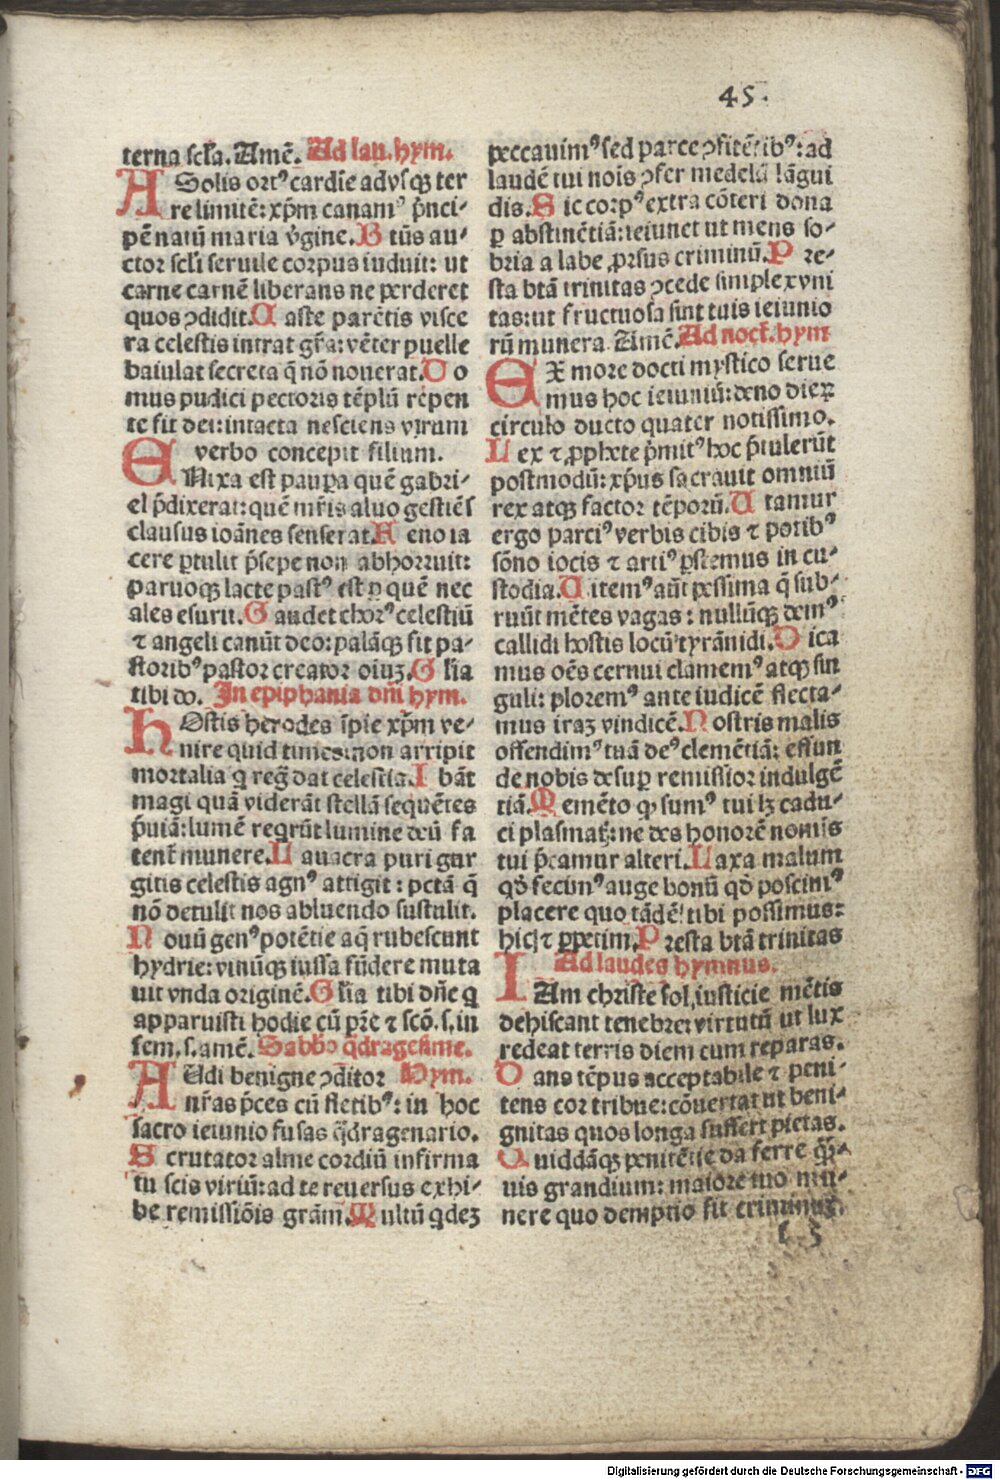 45.
terna scl̄a. Amē. Ad lau. hym.
A Solis ortꝰ cardīe advsqꝫ ter
re limitē: xp̄m canamꝰ p̄nci-
pē natū maria v̓gine. B tūs au-
ctor scl̓i seruile corpus induit: ut
carne carnē liberans ne perderet
quos ↄdidit. C aste parētis visce
ra celestis intrat gr̄a: vēter puelle
baiulat secreta q̄ nō nouerat. D o
mus pudici pectoris tēplū repen
te fit dei: intacta nesciens virum
verbo concepit filium.
E Nixa est paupa quē gabri-
el p̄dixerat: quē mr̄is aluo gestiēs
clausus ioānes senserat. F eno ia
cere ꝑtulit p̄sepe non abhorruit:
paruoqꝫ lacte pastꝰ est ꝑ quē nec
ales esurit. G audet chorꝰ celestiū
⁊ angeli canūt deo: palāqꝫ fit pa-
storibꝰ pastor creator oīuꝫ. G līa
tibi do. In epiphania dn̄i hym.
H Ostis herodes īpie xp̄m ve-
nire quid times: non arripit
mortalia q̇ regn̄ dat celestia. I bāt
magi quā viderāt stellā sequētes
p̄uiā: lumē reqrūt lumine deū fa
tent᷑ munere. L auacra puri gur
gitis celestis agnꝰ attigit: pctā q̄
nō detulit nos abluendo sustulit.
N ouū genꝰ potētie aq̄ rubescunt
hydrie: vinūqꝫ iussa fūdere muta
uit vnda originē. G līa tibi dn̄e q̇
apparuisti hodie cū pr̄e ⁊ scō. s. in
sem. s. amē. Sabbō q̄dragesime.
A Udi benigne ↄditor Hym.
nr̄as p̄ces cū fletibꝰ: in hoc
sacro ieiunio fusas q̄dragenario.
S crutator alme cordiū infirma
tu scis viriū: ad te reuersus exhi-
be remissiōis grām. M ultū q̇deꝫ
peccauimꝰ sed parce ↄfitētibꝰ: ad
laudē tui nōis ↄfer medelā lāgui
dis. S ic corpꝰ extra cōteri dona
ꝑ abstinētiā: ieiunet ut mens so-
bria a labe ꝓrsus criminū. P re-
sta btā trinitas ↄcede simplex vni
tas: ut fructuosa sint tuis ieiunio
rū munera. Amē. Ad noct̄. hym
E X more docti mystico serue
mus hoc ieiuniū: deno dieꝝ
circulo ducto quater notissimo.
L ex ⁊ ꝓphete p̄mitꝰ hoc p̄tulerūt
postmodū: xp̄us sacrauit omniū
rex atqꝫ factor tēporū. U tamur
ergo parciꝰ verbis cibis ⁊ potibꝰ
sōno iocis ⁊ artiꝰ ꝑstemus in cu-
stodia. U itemꝰ aūt pessima q̄ sub-
ruūt mētes vagas: nullūqꝫ demꝰ
callidi hostis locū tyrānidi. D ica
mus oēs cernui clamemꝰ atqꝫ sin
guli: ploremꝰ ante iudicē flecta-
mus iraꝫ vindicē. N ostris malis
offendimꝰ tuā deꝰ clemētiā: effun
de nobis desup̄ remissior indulgē
tiā. M emēto q̇ sumꝰ tui lꝫ cadu-
ci plasmatꝭ: ne des honorē nomīs
tui p̄camur alteri. L axa malum
qd̄ fecimꝰ auge bonū qd̄ poscimꝰ
placere quo tādē tibi possimus:
hic ⁊ ꝑpetim. P resta btā trinitas
Ad laudes hymnus.
I Am christe sol iusticie mētis
dehiscant tenebre: virtutū ut lux
redeat terris diem cum reparas.
D ans tēpus acceptabile ⁊ peni-
tens cor tribue: cōuertat ut beni-
gnitas quos longa suffert pietas.
Q uiddāqꝫ penitētie da ferre q̄uis
uis grandium: maiore tuo mu-
nere quo demptio fit criminuꝫ.